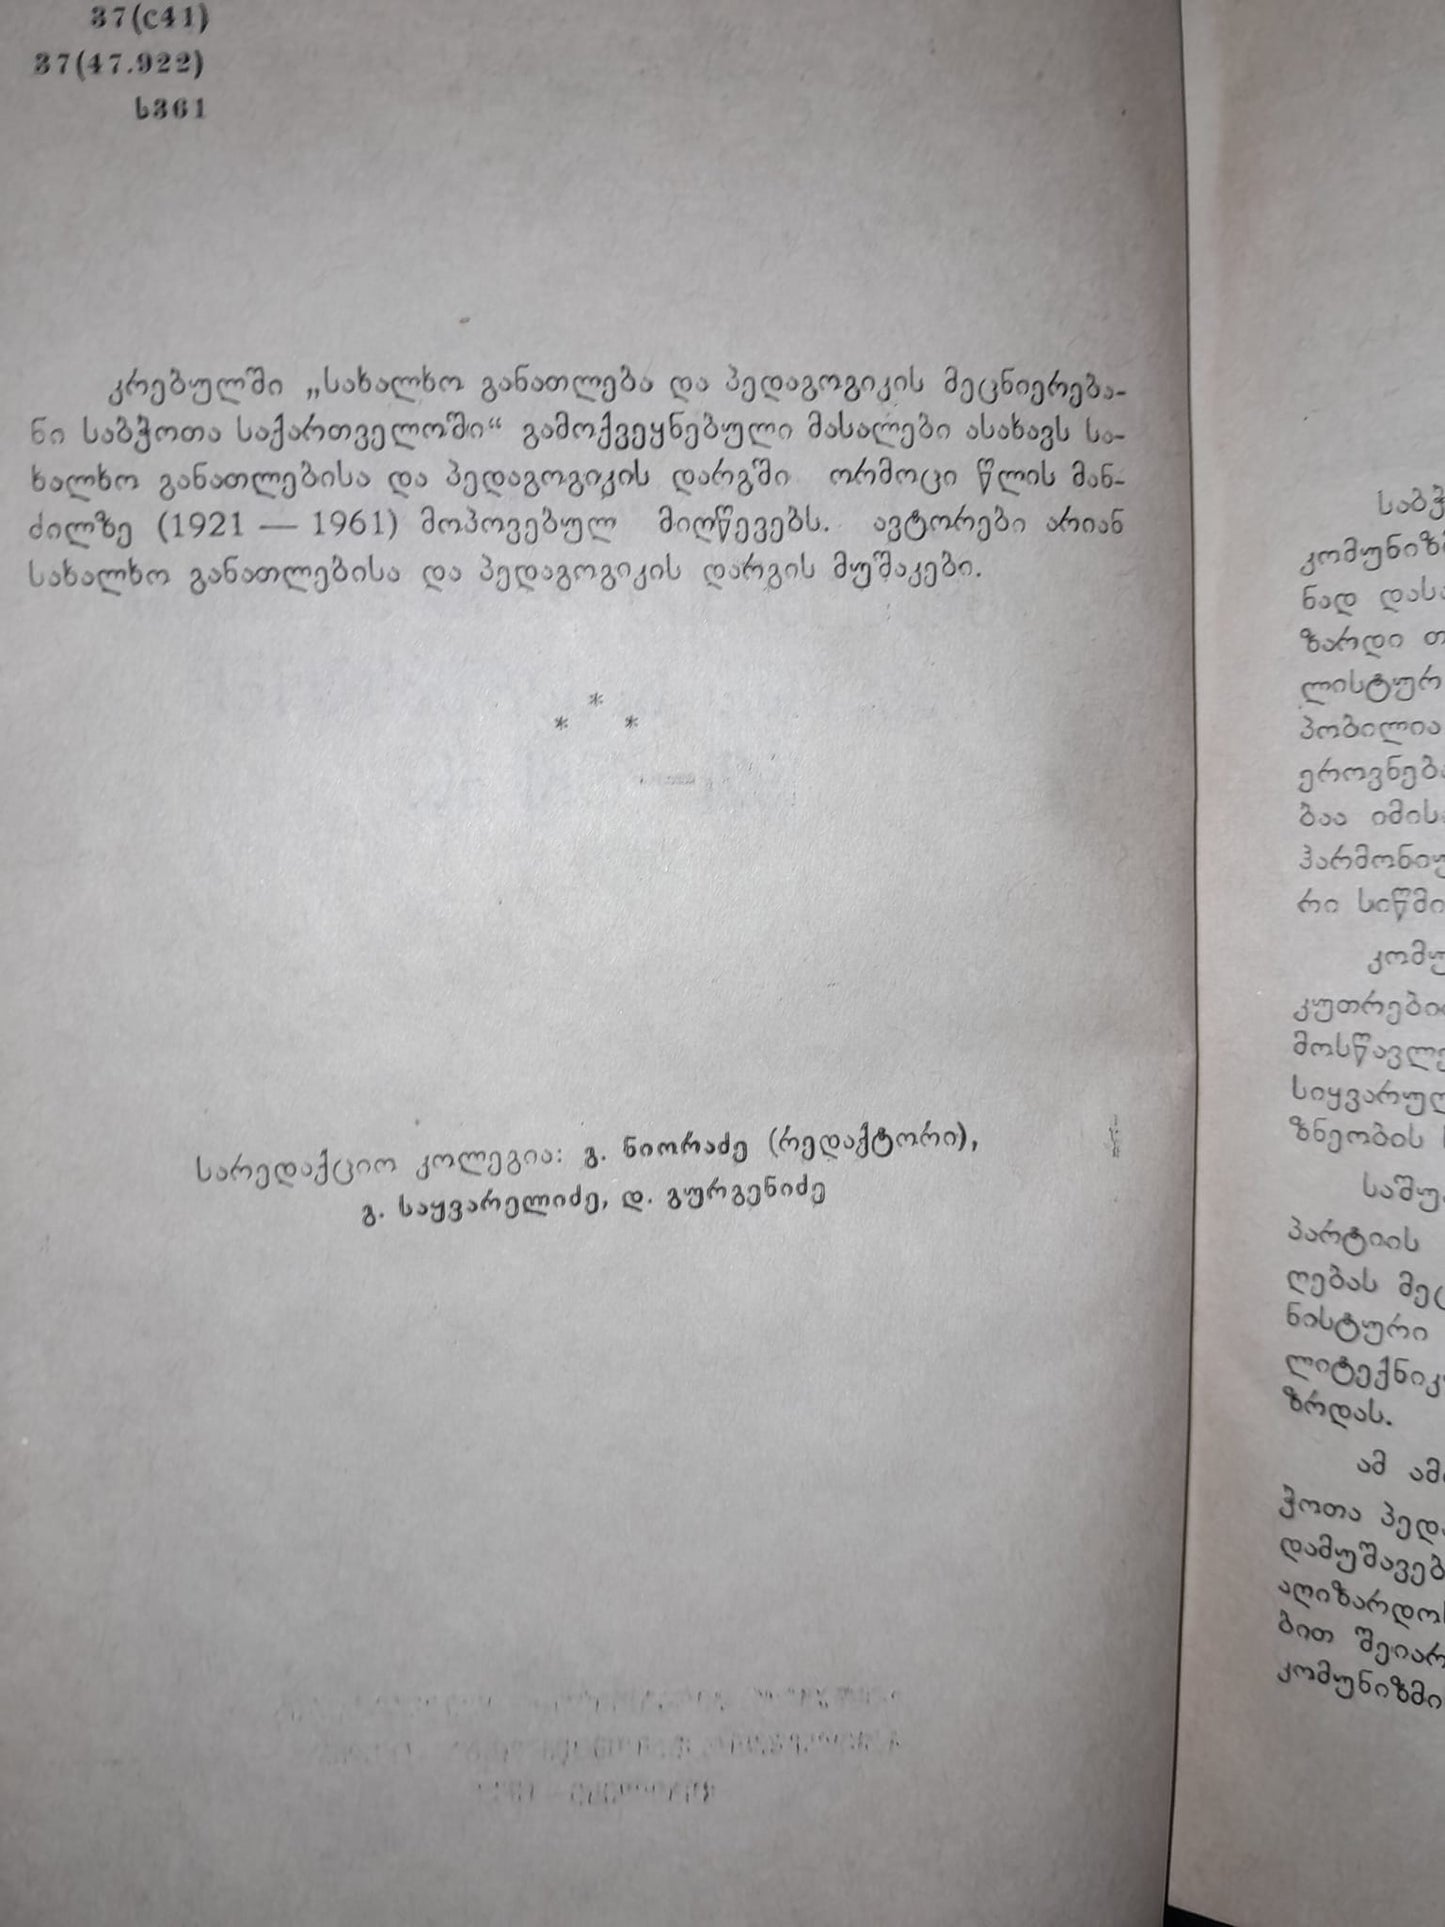 37(С41)
37(47.922)
ს361
კრებულში „სახალხო განათლება და პედაგოგიკის მეცნიერება-
ნი საბჭოთა საქართველოში“ გამოქვეყნებული მასალები ასახავს სა-
ხალხო განათლებისა და პედაგოგიკის დარგში ორმოცი წლის მან-
ძილზე (1921 — 1961) მოპოვებულ მიღწევებს. ავტორები არიან
სახალხო განათლებისა და პედაგოგიკის დარგის მუშაკები.
*
* *
სარედაქციო კოლეგია: გ. ნიორაძე (რედაქტორი),
გ. საყვარელიძე, დ. გურგენიძე
საბჭ
კომუნიზმ
ნად დასა
ზარდი თ
ლისტურ
პობილია
ეროვნება
ბაა იმისა
ჰარმონიუ
რი სიწმი
კომუ
კუთრებით
მოსწავლე
სიყვარულ
ზნეობის
საშუ
პარტიის
ღებას მეც
ნისტური
ლიტექნიკუ
ზრდას.
ამ ამ
ჭოთა პედა
დამუშავებ
აღიზარდოს
ბით შეიარ
კომუნიზმი